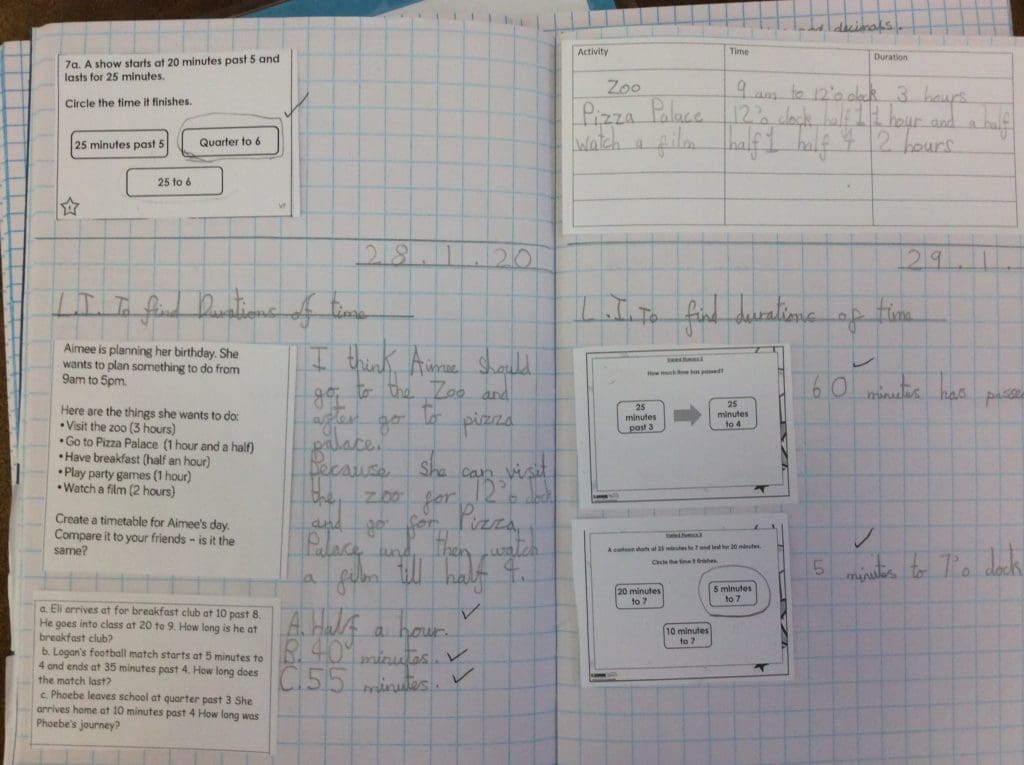 7a. A show starts at 20 minutes past 5 and
lasts for 25 minutes.
Circle the time it finishes.
25 minutes past 5
Quarter to 6
25 to 6
VF
28.1.20
L.I. To find Durations of time
Aimee is planning her birthday. She
wants to plan something to do from
9am to 5pm.
Here are the things she wants to do:
• Visit the zoo (3 hours)
• Go to Pizza Palace (1 hour and a half)
• Have breakfast (half an hour)
• Play party games (1 hour)
• Watch a film (2 hours)
Create a timetable for Aimee's day.
Compare it to your friends – is it the
same?
I think Aimee should
go to the Zoo and
after go to pizza
palace.
Because she can visit
the zoo for 12'o clock
and go for Pizza
Palace and then watch
a film till half 4.
a. Eli arrives at for breakfast club at 10 past 8.
He goes into class at 20 to 9. How long is he at
breakfast club?
b. Logan's football match starts at 5 minutes to
4 and ends at 35 minutes past 4. How long does
the match last?
c. Phoebe leaves school at quarter past 3 She
arrives home at 10 minutes past 4 How long was
Phoebe's journey?
A. Half a hour.
B. 40 minutes.
C. 55 minutes.
decimals.
Activity Time Duration
Zoo 9 am to 12'o clock 3 hours
Pizza Palace 12'o clock half 1 1 hour and a half
watch a film half 1 half 4 2 hours
29.1.
L.I. To find durations of time
Varied Fluency 2
How much time has passed?
25
minutes
past 3
25
minutes
to 4
60 minutes has passe
Varied Fluency 3
A cartoon starts at 25 minutes to 7 and last for 20 minutes.
Circle the time it finishes.
20 minutes
to 7
5 minutes
to 7
10 minutes
to 7
5 minutes to 7'o clock